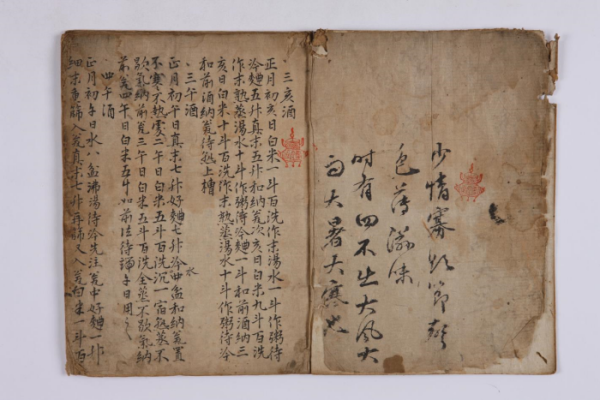 少情寡欲節聲
色薄滋味
時有四不出大風大
雨大暑大寒也
三亥酒
正月初亥日白米一斗百洗作末湯水一斗作粥待
冷麵五升真末五升和納瓮次亥日白米九斗百洗
作末熟蒸湯水十斗作粥待冷麵一斗和前酒納三
亥日白米十斗百洗作末熟蒸湯水十斗作粥待冷
和前酒納瓮待熟上槽
三午酒
正月初午日真末七升好麵七升冷水四盆和納瓮置
不寒不熱處二午日白米五斗百洗沉一宿熟蒸不
歇氣納前瓮三午日白米五斗百洗全蒸不歇氣納
前瓮四午日白米五斗如前法待端午日用之
四午酒
正月初午日水八盆沸湯待冷先注瓮中好麵一升
細末重篩入瓮真末七升再篩又入瓮白米一斗百